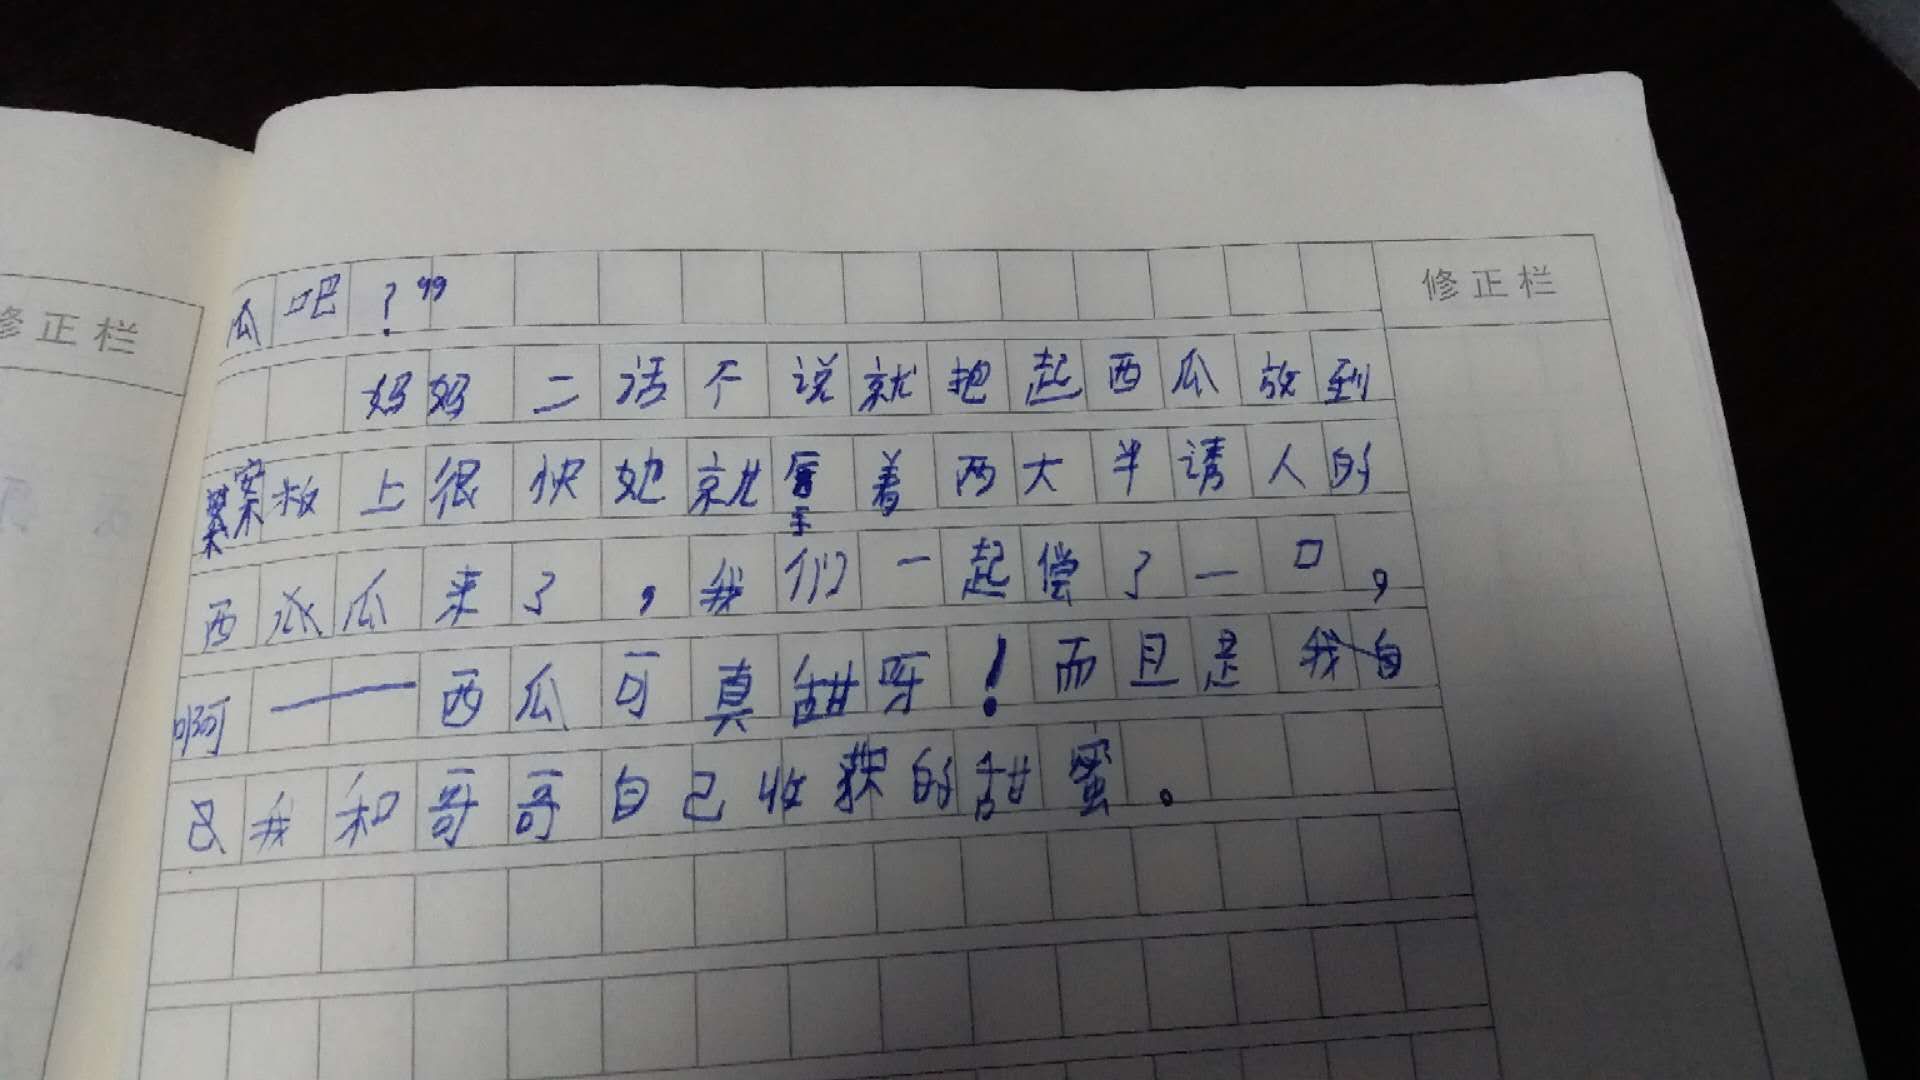 修正栏
修正栏
瓜吧？”
妈妈二话不说就抱起西瓜放到
案板上很快她就拿着两大半诱人的
西瓜来了，我们一起尝了一口，
啊——西瓜可真甜呀！而且是
我和哥哥自己收获的甜蜜。